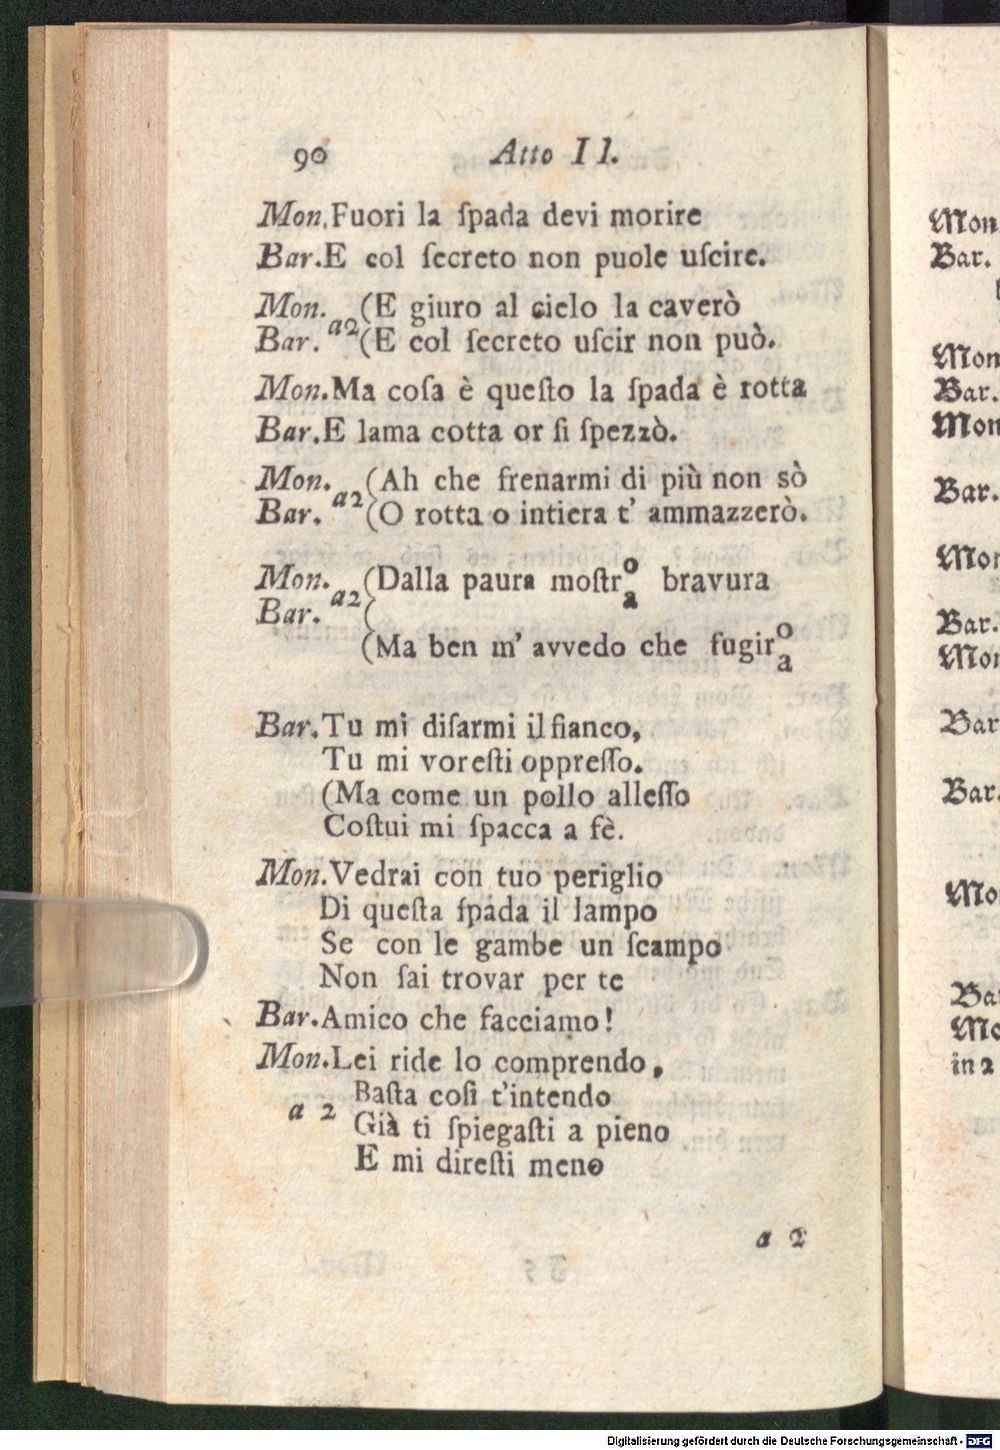 90 Atto I I.
Mon. Fuori la ſpada devi morire
Bar. E col ſecreto non puole uſcire.
Mon. (E giuro al cielo la caverò
a2
Bar. (E col ſecreto uſcir non può.
Mon. Ma coſa è queſto la ſpada è rotta
Bar. E lama cotta or ſi ſpezzò.
Mon. (Ah che frenarmi di più non sò
a2
Bar. (O rotta o intiera t' ammazzerò.
Mon. (Dalla paura moſtr o/a bravura
a2
Bar. (
(Ma ben m' avvedo che fugir o/a
Bar. Tu mi diſarmi il fianco,
Tu mi voreſti oppreſſo.
(Ma come un pollo alleſſo
Coſtui mi ſpacca a fè.
Mon. Vedrai con tuo periglio
Di queſta ſpada il lampo
Se con le gambe un ſcampo
Non ſai trovar per te
Bar. Amico che facciamo!
Mon. Lei ride lo comprendo,
Baſta coſi t'intendo
a 2
Già ti ſpiegaſti a pieno
E mi direſti meno
a 2
Mon
Bar.
Mon
Bar.
Mon
Bar.
Mon
Bar.
Mon
Bar
Bar.
Mo
Ba
Mo
in 2
Digitalisierung gefördert durch die Deutsche Forschungsgemeinschaft - DFG